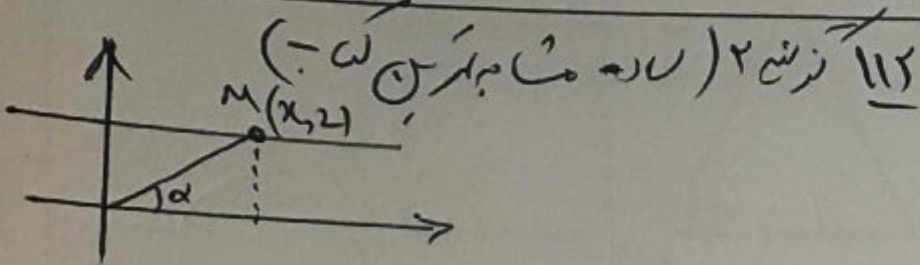 ۱۱۲ گزینه ۲ (ساده مشابه تمرین کتاب)
M(x,2)
α